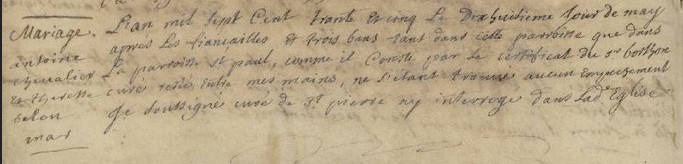 Mariage.
antoine
chevalier
et therese
belon
mar
L'an mil sept Cent trante et cinq Le Dixhuitieme Jour de may
apres Les fiancailles et trois bans tant dans cette parroisse que dans
La parroisse St paul, comme il Conste par Le certificat du sr
curé resté entre mes mains, ne s'etant trouvé aucun Empechement
Je soussigné curé de St pierre ay interrogé dans Lade Eglise